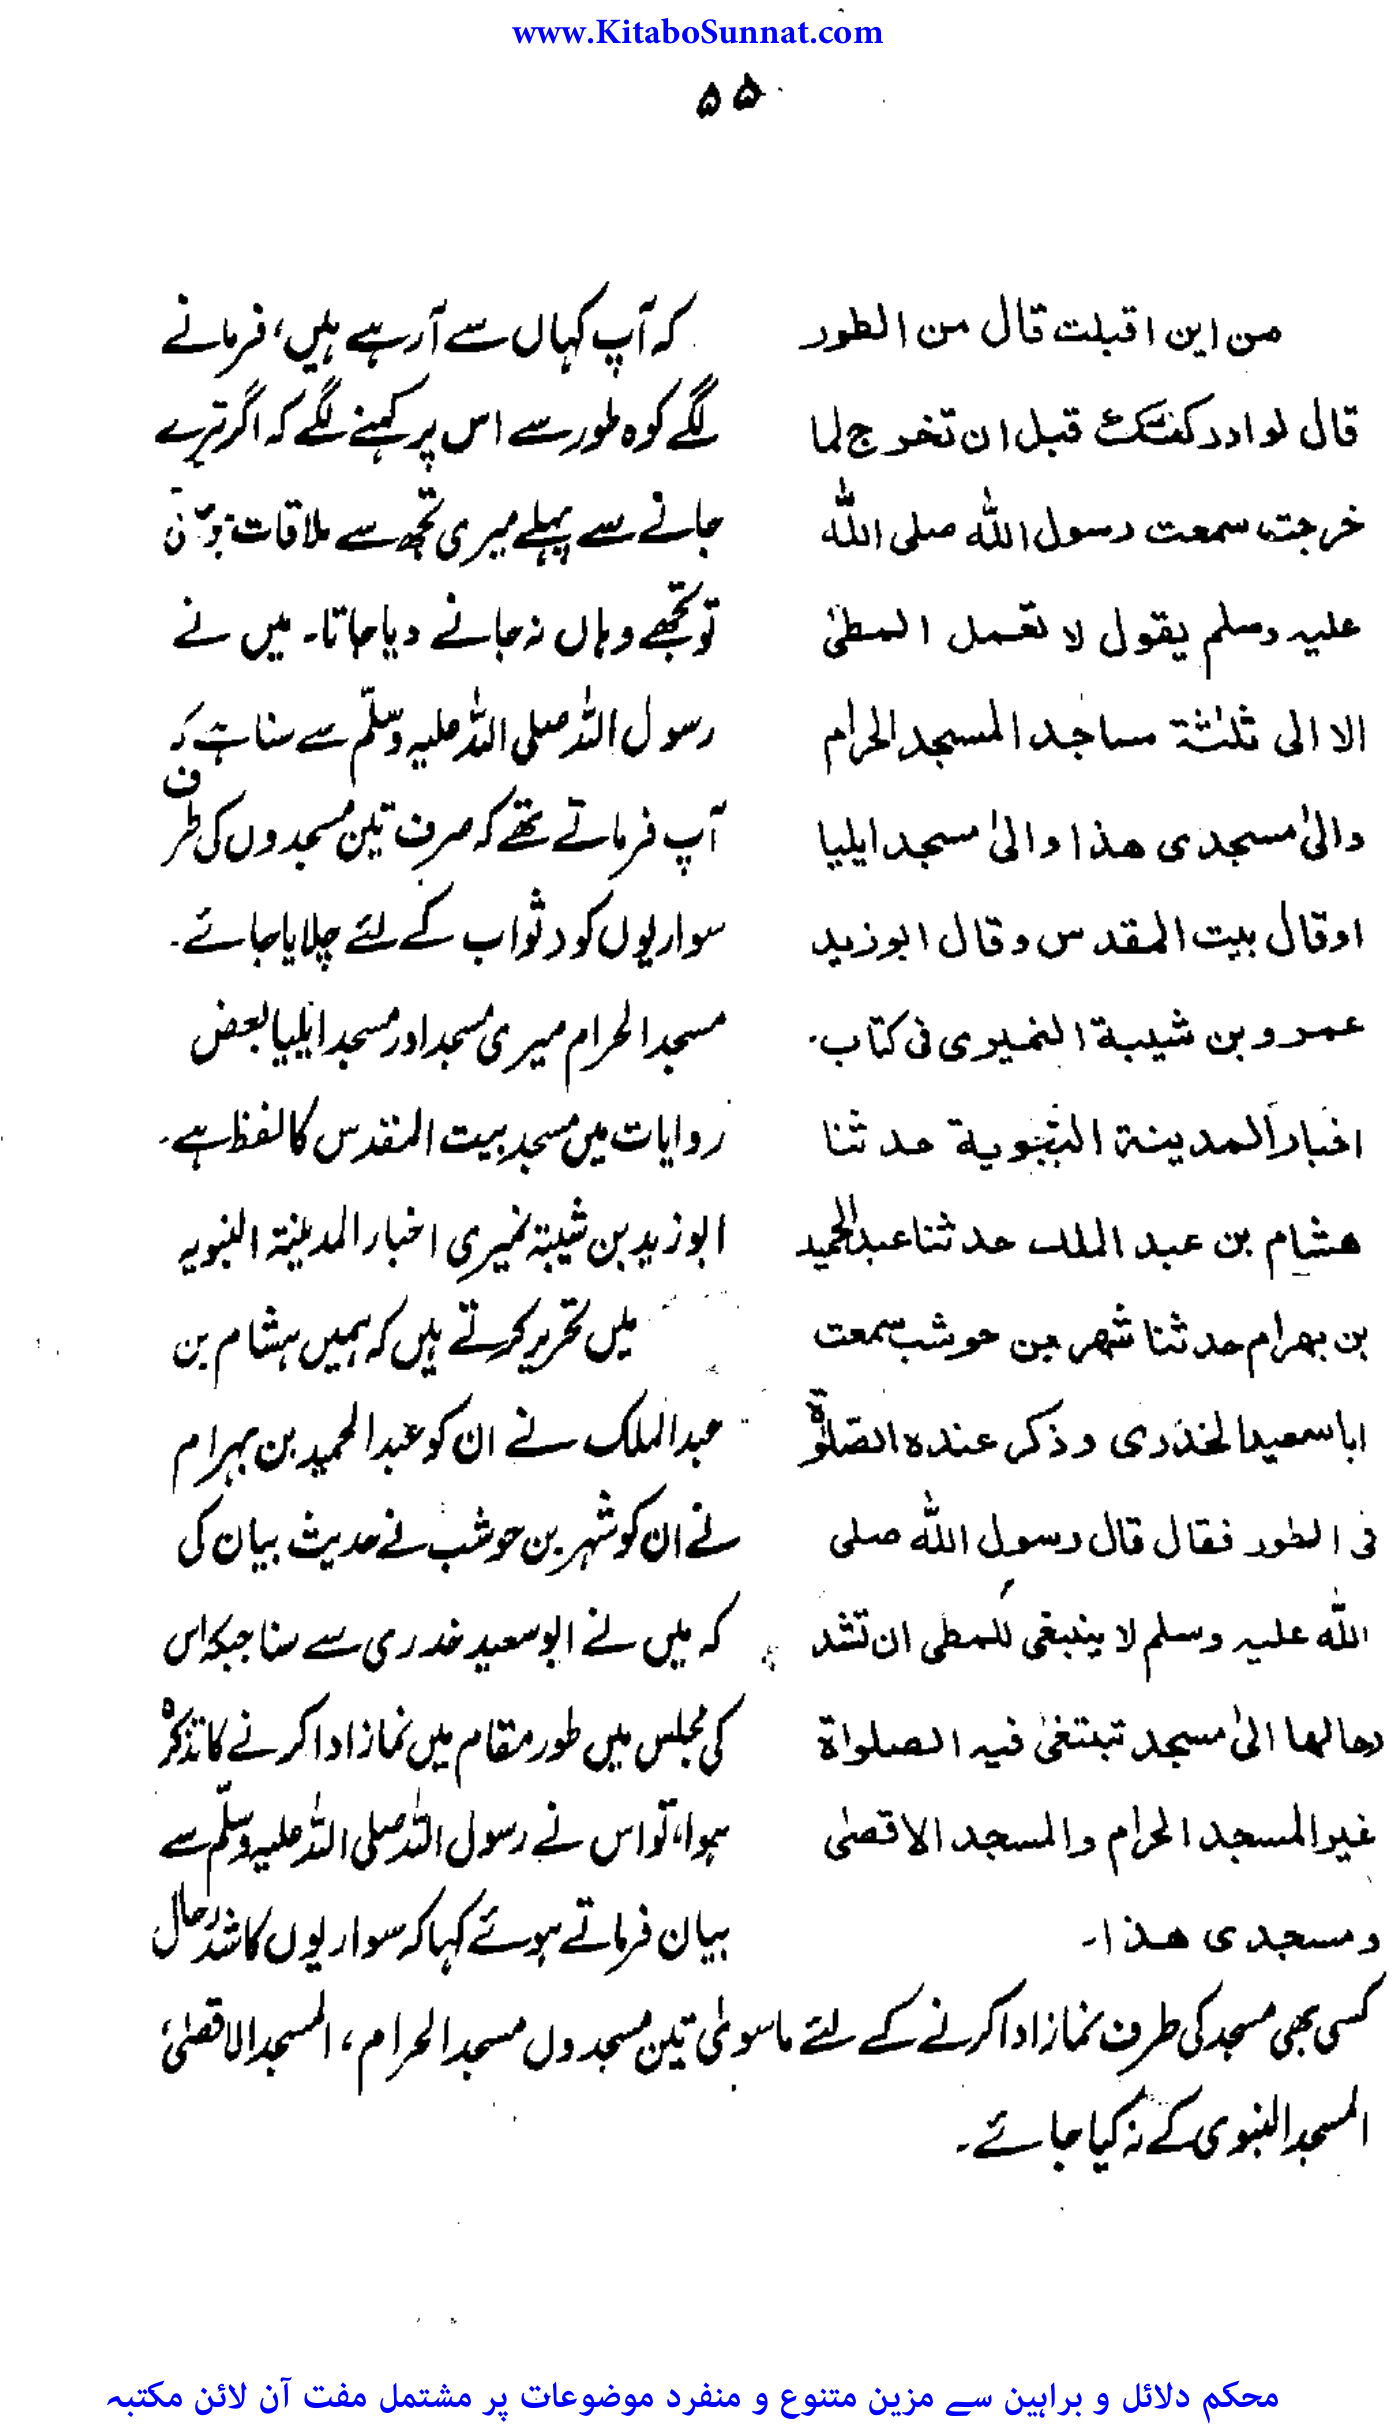 www.KitaboSunnat.com
۵۵
من این اقبلت قال من الطور
قال لو ادرکتک قبل ان تخرج لما
خرجت سمعت رسول اللہ صلی اللہ
علیہ وسلم یقول لا تعمل المطیٰ
الا الی ثلثۃ مساجد المسجد الحرام
والیٰ مسجدی ھذا والیٰ مسجد ایلیا
او قال بیت المقدس وقال ابو زید
عمرو بن شیبة النمیری فی کتاب
اخبار المدینة النبویة حدثنا
ھشام بن عبد الملک حدثنا عبد الحمید
بن بھرام حدثنا شھر بن حوشب سمعت
ابا سعید الخدری وذکر عندہ الصلوٰۃ
فی الطور فقال قال رسول اللہ صلی
اللہ علیہ وسلم لا ینبغی للمطی ان تشد
رحالھا الیٰ مسجد تبتغیٰ فیہ الصلواۃ
غیر المسجد الحرام والمسجد الاقصیٰ
ومسجدی ھذا۔
کہ آپ کہاں سے آرہے ہیں، فرمانے
لگے کوہ طور سے اس پر کہنے لگے کہ اگر تیرے
جانے سے پہلے میری تجھ سے ملاقات ہوتی
تو تجھے وہاں نہ جانے دیا جاتا۔ میں نے
رسول اللہ صلی اللہ علیہ وسلّم سے سنا ہے کہ
آپ فرماتے تھے کہ صرف تین مسجدوں کی طرف
سواریوں کو (ثواب کے لئے چلایا جائے۔
مسجد الحرام میری مسجد اور مسجد ایلیا بعض
روایات میں مسجد بیت المقدس کا لفظ ہے۔
ابو زید بن شیبۃ نمیری اخبار المدینۃ النبویہ
میں تحریر کرتے ہیں کہ ہمیں ہشام بن
عبد الملک نے ان کو عبد الحمید بن بہرام
نے ان کو شہر بن حوشب نے حدیث بیان کی
کہ میں نے ابو سعید خدری سے سنا جبکہ اس
کی مجلس میں طور مقام میں نماز ادا کرنے کا تذکرہ
ہوا، تو اس نے رسول اللہ صلی اللہ علیہ وسلّم سے
بیان فرماتے ہوئے کہا کہ سواریوں کا شد رحال
کسی بھی مسجد کی طرف نماز ادا کرنے کے لئے ماسویٰ تین مسجدوں مسجد الحرام، المسجد الاقصیٰ،
المسجد النبوی کے نہ کیا جائے۔
محکم دلائل و براہین سے مزین متنوع و منفرد موضوعات پر مشتمل مفت آن لائن مکتبہ